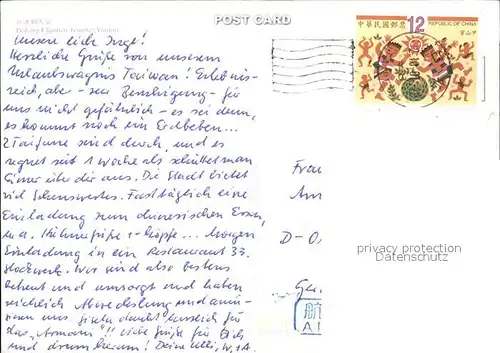 POST CARD
中華民國郵票 12
REPUBLIC OF CHINA
Unsere liebe Inge!
Herzliche Grüße von unserem
Urlaubswagnis Taiwan! Erlebnis-
reich, aber - zur Beruhigung - für
uns nicht gefährlich - es sei denn,
es kommt noch ein Erdbeben...
2 Taifune sind durch, und es
regnet seit 1 Woche als schüttet man
Eimer über dir aus. Die Stadt bietet
viel Sehenswertes. Fast täglich eine
Einladung zum chinesischen Essen,
u.a. Hühnerfüße + -köpfe... Morgen
Einladung in ein Restaurant 33.
Stockwerk. Wir sind also bestens
betreut und umsorgt und haben
reichlich Abwechslung und amü-
sieren uns. Gisela dankt herzlich für
"Armani"!! Liebe Grüße für Dich
und drumherum! Deine Ulli,
Frau
D-O
privacy protection
Datenschutz
航